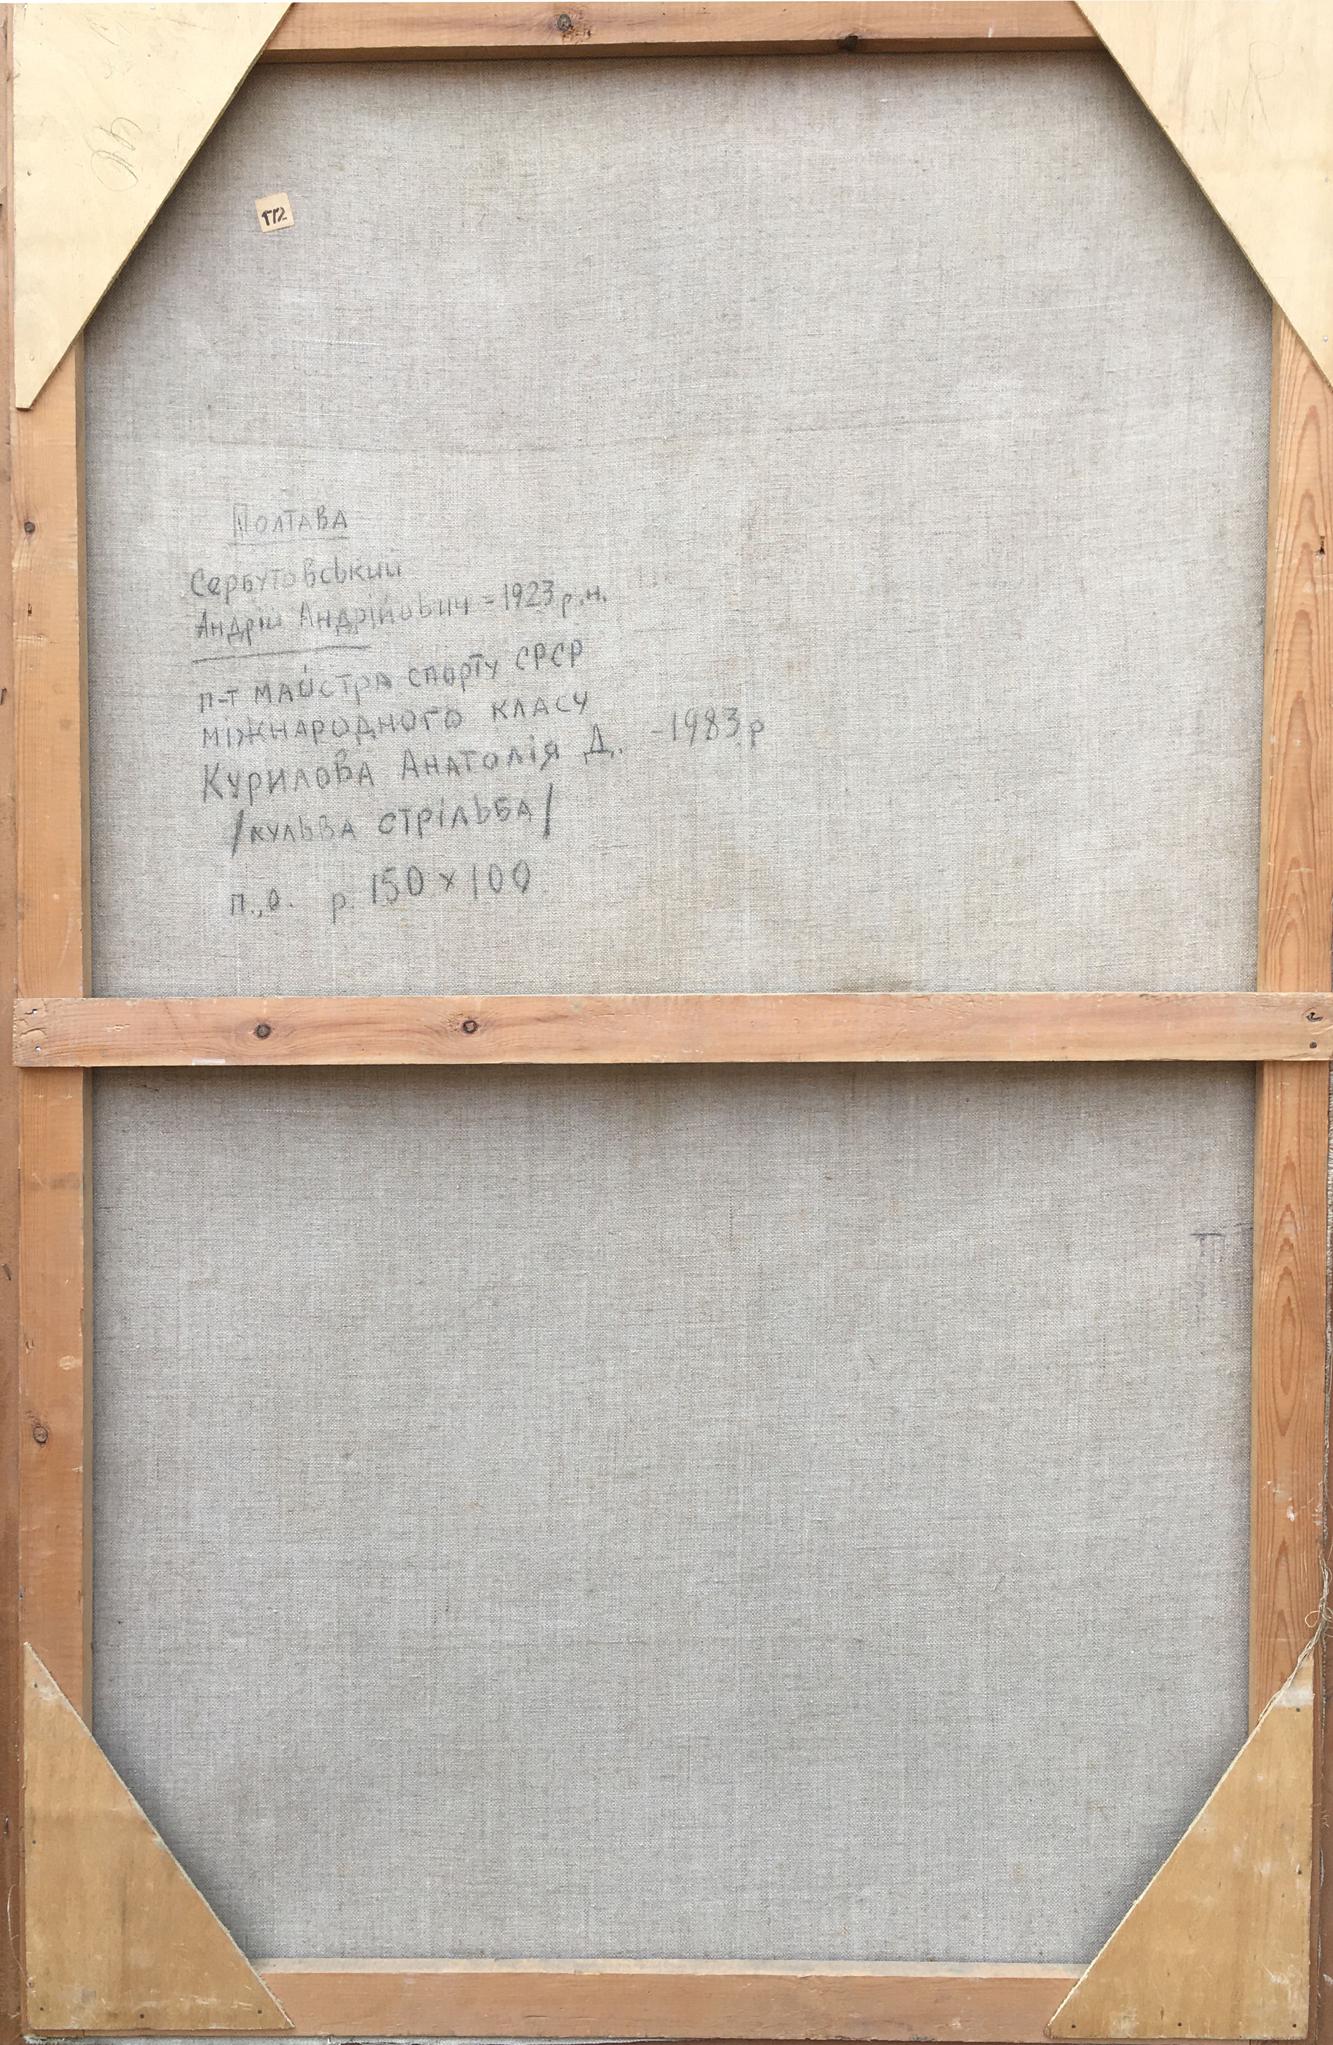 172
Полтава
Сербутовський
Андрій Андрійович = 1923 р.н.
п-т майстра спорту СРСР
міжнародного класу
Курилова Анатолія Д. - 1983 р
/кульва стрільба/
п.,о. р. 150 х 100